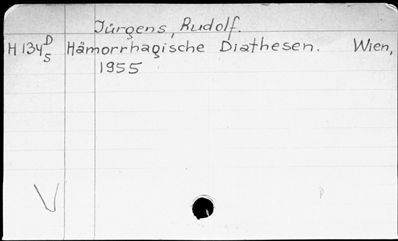 Jürgens, Rudolf.
H 134 D/S Hämorrhagische Diathesen. Wien,
1955